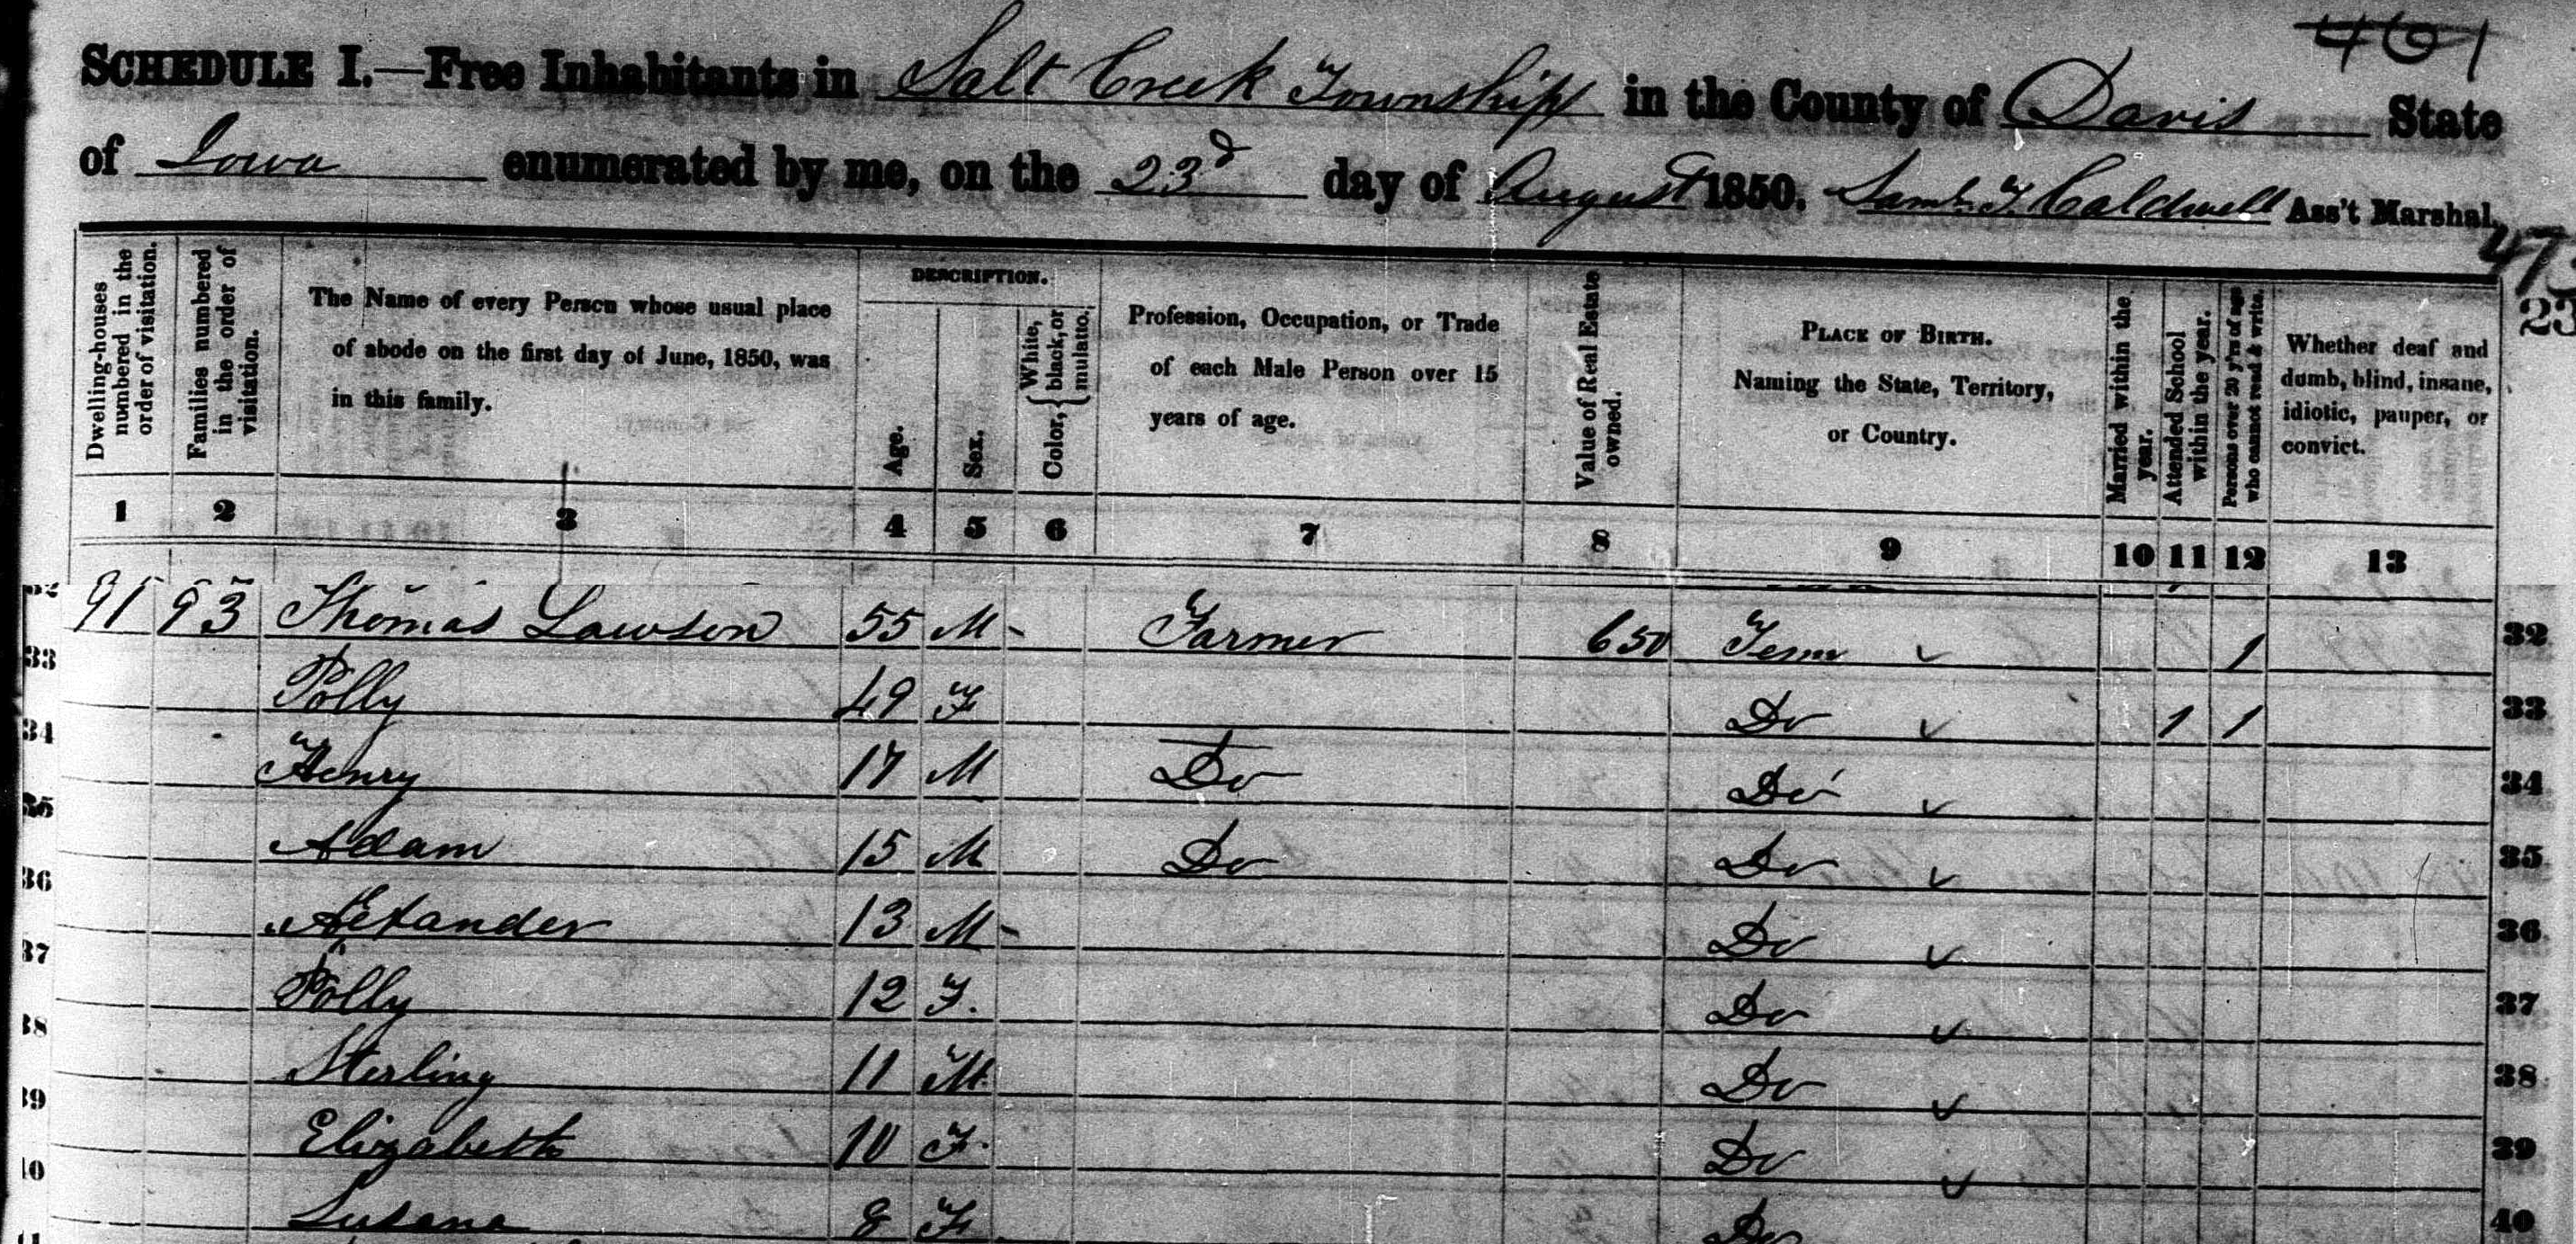 461
SCHEDULE I.—Free Inhabitants in Salt Creek Township in the County of Davis State
of Iowa enumerated by me, on the 23d day of August 1850. Saml. T. Caldwell Ass't Marshal.
473
23
Dwelling-houses numbered in the order of visitation.
Families numbered in the order of visitation.
The Name of every Person whose usual place of abode on the first day of June, 1850, was in this family.
DESCRIPTION.
Age.
Sex.
Color, { White, black, or mulatto.
Profession, Occupation, or Trade of each Male Person over 15 years of age.
Value of Real Estate owned.
PLACE OF BIRTH. Naming the State, Territory, or Country.
Married within the year.
Attended School within the year.
Persons over 20 y'rs of age who cannot read & write.
Whether deaf and dumb, blind, insane, idiotic, pauper, or convict.
1 2 3 4 5 6 7 8 9 10 11 12 13
32 91 93 Thomas Lawson 55 M - Farmer 650 Tenn 1 32
33 Polly 49 F Do 1 1 33
34 Henry 17 M Do Do 34
35 Adam 15 M Do Do 35
36 Alexander 13 M - Do 36
37 Polly 12 F. Do 37
38 Sterling 11 M Do 38
39 Elizabeth 10 F. Do 39
40 Susana 8 F Do 40
41